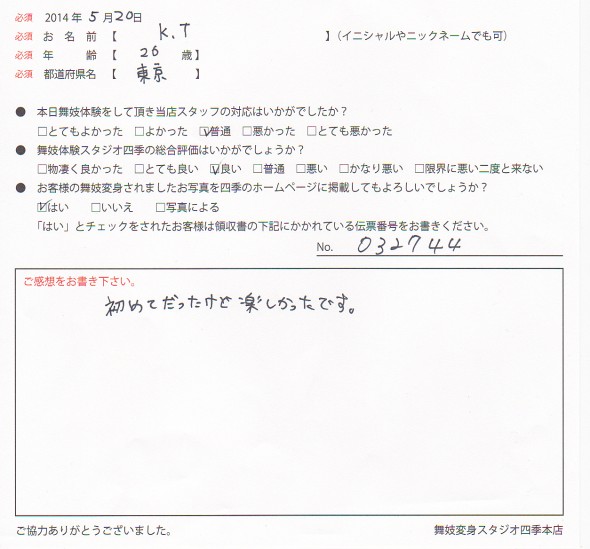 必須 2014年 5月20日
必須 お名前【 K.T 】（イニシャルやニックネームでも可）
必須 年齢【 26 歳】
必須 都道府県名【 東京 】
● 本日舞妓体験をして頂き当店スタッフの対応はいかがでしたか？
□とてもよかった □よかった ☑普通 □悪かった □とても悪かった
● 舞妓体験スタジオ四季の総合評価はいかがでしょうか？
□物凄く良かった □とても良い ☑良い □普通 □悪い □かなり悪い □限界に悪い二度と来ない
● お客様の舞妓変身されましたお写真を四季のホームページに掲載してもよろしいでしょうか？
☑はい □いいえ □写真による
「はい」とチェックをされたお客様は領収書の下記にかかれている伝票番号をお書きください。
No. 032744
ご感想をお書き下さい。
初めてだったけど楽しかったです。
ご協力ありがとうございました。 舞妓変身スタジオ四季本店